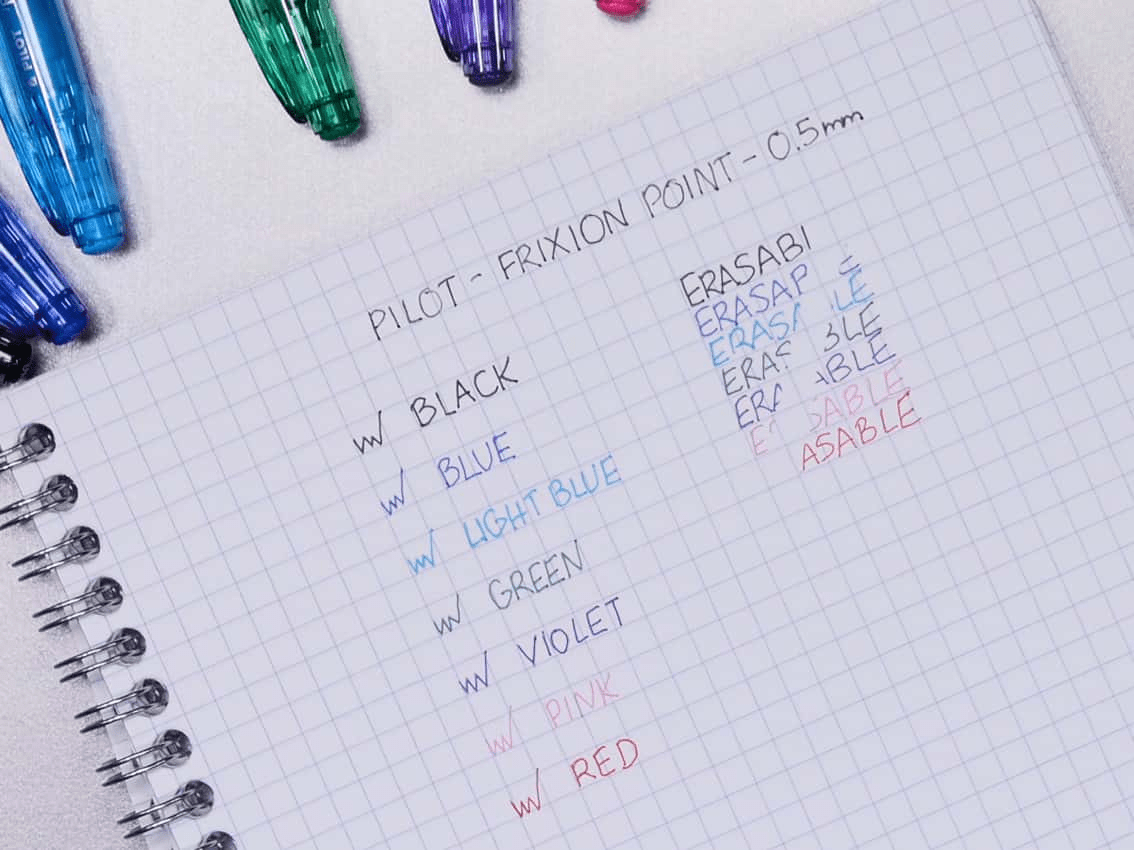 PILOT
PILOT - FRIXION POINT - 0.5mm
BLACK
BLUE
LIGHT BLUE
GREEN
VIOLET
PINK
RED
ERASABI
ERASAP E
ERASA LE
ERAS BLE
ERA ABLE
E SABLE
ASABLE